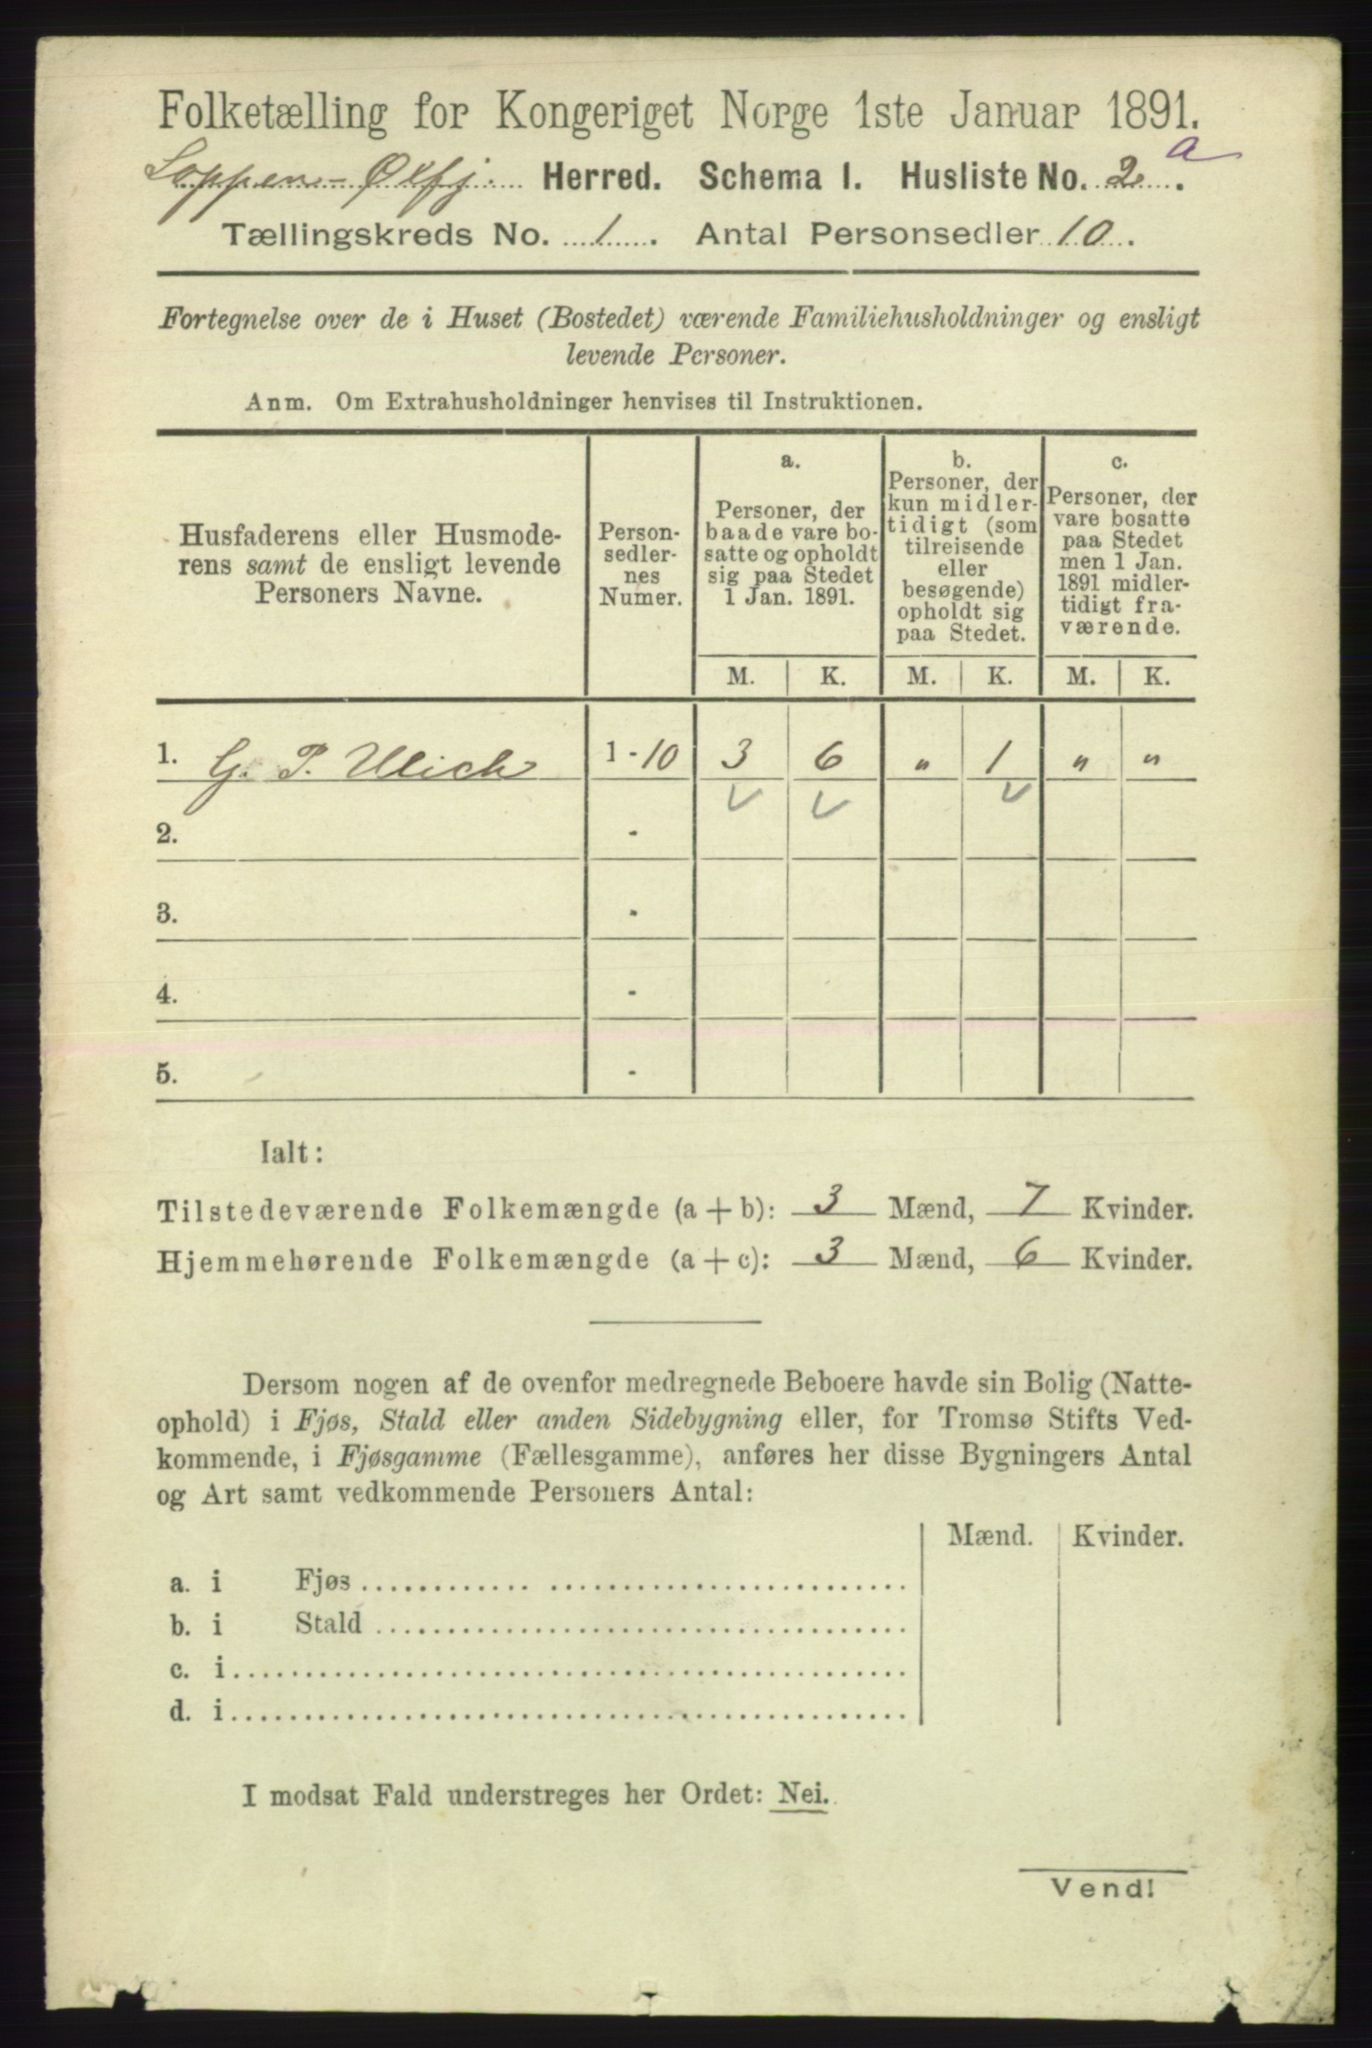 Folketælling for Kongeriget Norge 1ste Januar 1891.
Loppen - Øxfj. Herred. Schema I. Husliste No. 2 a.
Tællingskreds No. 1. Antal Personsedler 10.
Fortegnelse over de i Huset (Bostedet) værende Familiehusholdninger og ensligt
levende Personer.
Anm. Om Extrahusholdninger henvises til Instruktionen.
Husfaderens eller Husmode-
rens samt de ensligt levende
Personers Navne.
Person-
sedler-
nes
Numer.
a.
Personer, der
baade vare bo-
satte og opholdt
sig paa Stedet
1 Jan. 1891.
b.
Personer, der
kun midler-
tidigt (som
tilreisende
eller
besøgende)
opholdt sig
paa Stedet.
c.
Personer, der
vare bosatte
paa Stedet
men 1 Jan.
1891 midler-
tidigt fra-
værende.
M. K. M. K. M. K.
1. G. P. Ulich 1 - 10 3 6 " 1 " "
2. -
3. -
4. -
5. -
Ialt:
Tilstedeværende Folkemængde (a + b): 3 Mænd, 7 Kvinder.
Hjemmehørende Folkemængde (a + c): 3 Mænd, 6 Kvinder.
Dersom nogen af de ovenfor medregnede Beboere havde sin Bolig (Natte-
ophold) i Fjøs, Stald eller anden Sidebygning eller, for Tromsø Stifts Ved-
kommende, i Fjøsgamme (Fællesgamme), anføres her disse Bygningers Antal
og Art samt vedkommende Personers Antal:
Mænd. Kvinder.
a. i Fjøs
b. i Stald
c. i
d. i
I modsat Fald understreges her Ordet: Nei.
Vend!